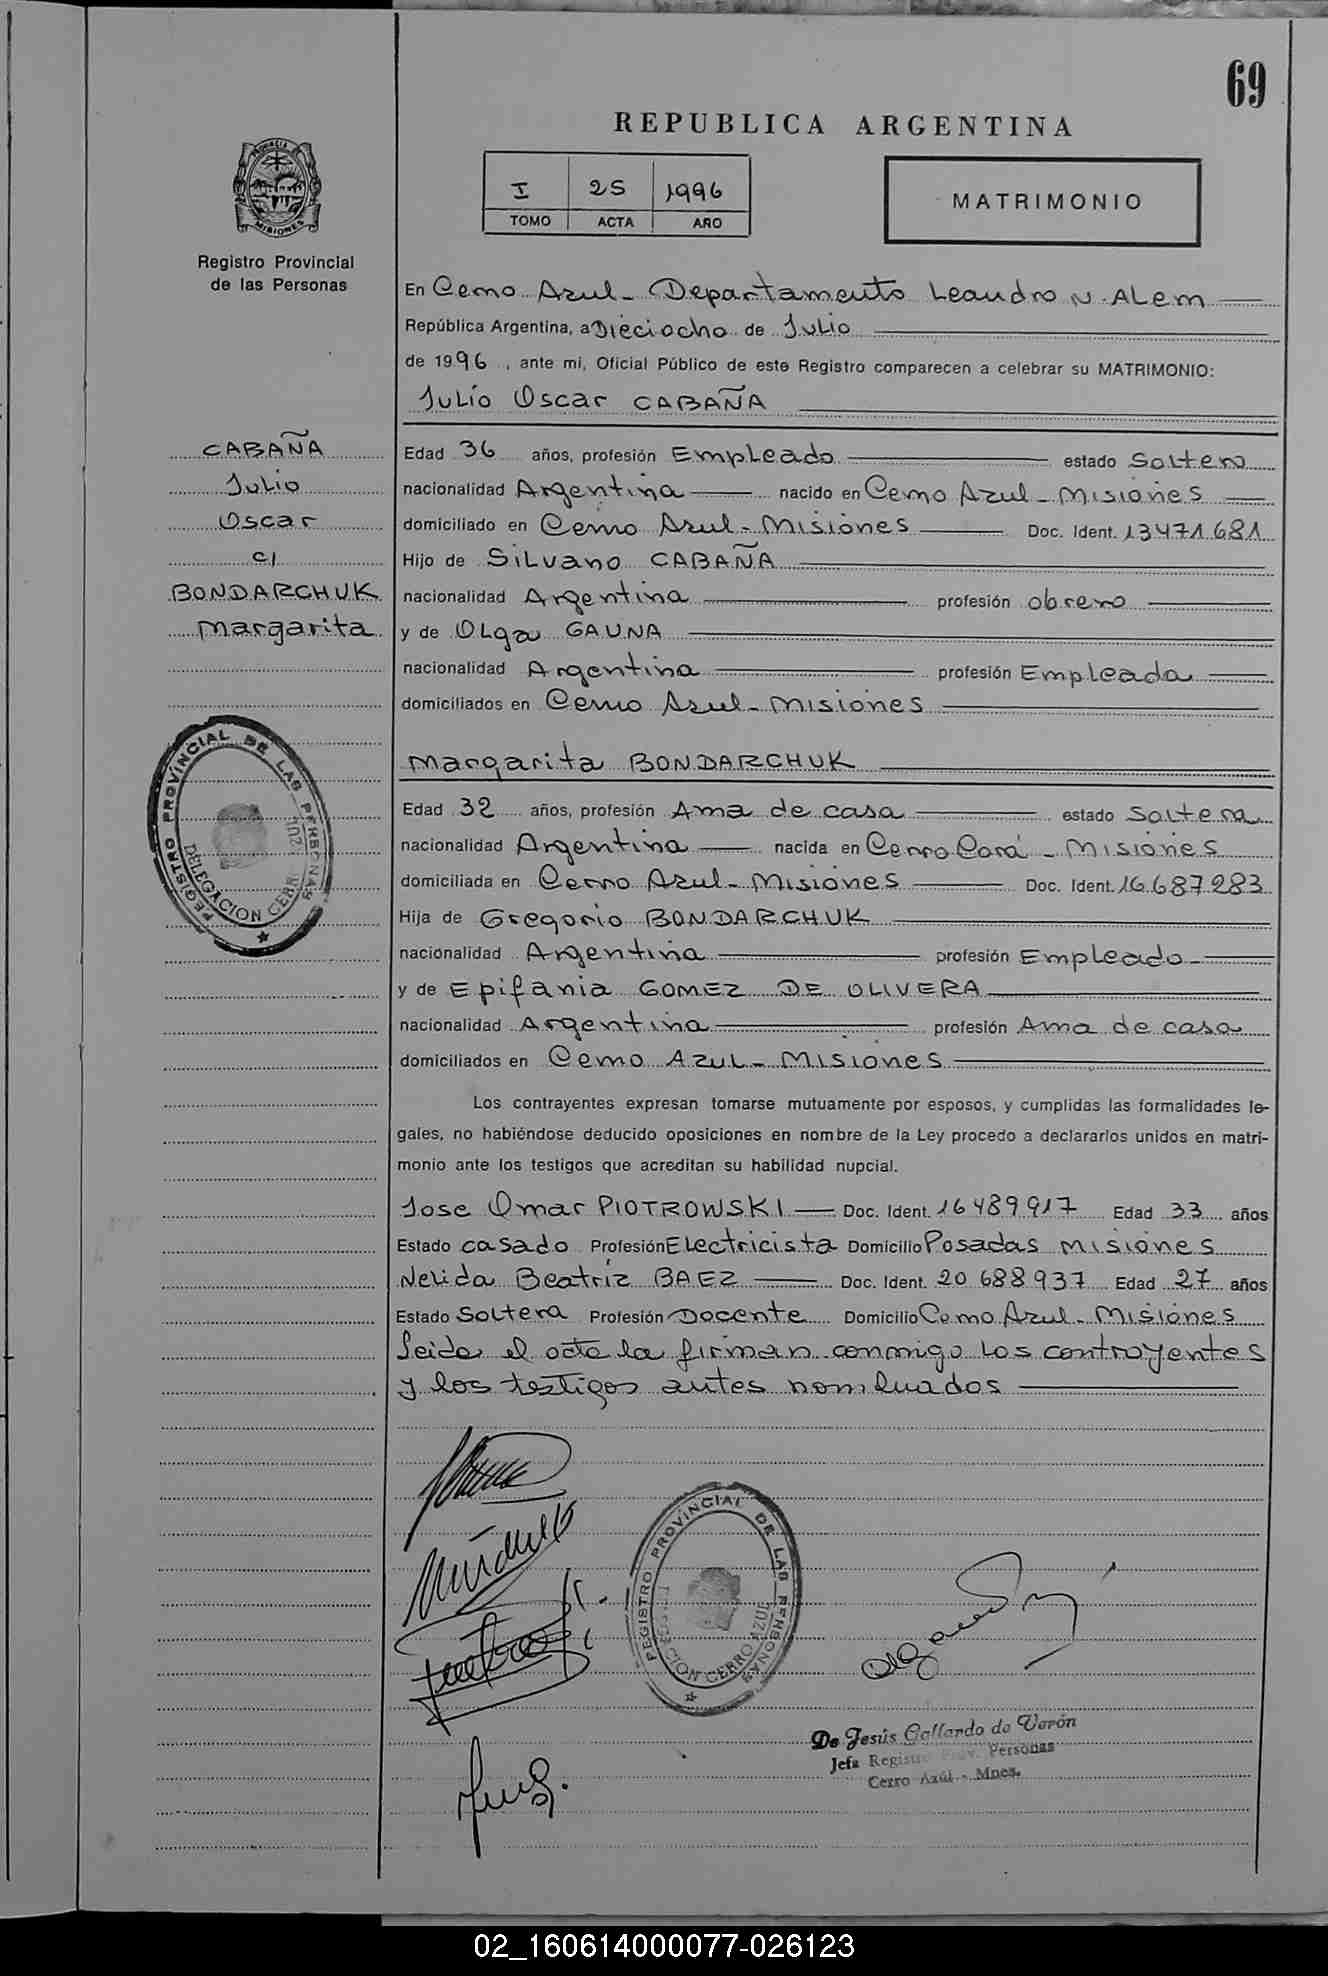 69
REPUBLICA ARGENTINA
I 25 1996
TOMO ACTA AÑO
MATRIMONIO
PROVINCIA DE
MISIONES
Registro Provincial
de las Personas
En Cerro Azul - Departamento Leandro N. ALem
República Argentina, a Dieciocho de Julio
de 1996, ante mi, Oficial Público de este Registro comparecen a celebrar su MATRIMONIO:
Julio Oscar CABAÑA
CABAÑA
Julio
Oscar
c/
BONDARCHUK
Margarita
Edad 36 años, profesión Empleado estado Soltero
nacionalidad Argentina nacido en Cerro Azul - Misiones
domiciliado en Cerro Azul - Misiones Doc. Ident. 13471681
Hijo de Silvano CABAÑA
nacionalidad Argentina profesión obrero
y de Olga GAUNA
nacionalidad Argentina profesión Empleada
domiciliados en Cerro Azul - Misiones
Margarita BONDARCHUK
Edad 32 años, profesión Ama de casa estado Soltera
nacionalidad Argentina nacida en Cerro Corá - Misiones
domiciliada en Cerro Azul - Misiones Doc. Ident. 16.687283
Hija de Gregorio BONDARCHUK
nacionalidad Argentina profesión Empleado
y de Epifania GOMEZ DE OLIVERA
nacionalidad Argentina profesión Ama de casa
domiciliados en Cerro Azul - Misiones
REGISTRO PROVINCIAL DE LAS PERSONAS
DELEGACION CERR ZUL
Los contrayentes expresan tomarse mutuamente por esposos, y cumplidas las formalidades le-
gales, no habiéndose deducido oposiciones en nombre de la Ley procedo a declararlos unidos en matri-
monio ante los testigos que acreditan su habilidad nupcial.
Jose Omar PIOTROWSKI Doc. Ident. 16489917 Edad 33 años
Estado casado Profesión Electricista Domicilio Posadas Misiones
Nelida Beatriz BAEZ Doc. Ident. 20688937 Edad 27 años
Estado Soltera Profesión Docente Domicilio Cerro Azul - Misiones
Leida el acta la firman conmigo los contrayentes
y los testigos antes nombrados
REGISTRO PROVINCIAL DE LAS PERSONAS
CION CERRO AZUL
De Jesús Gallardo de Verón
Jefa Registro Prov. Personas
Cerro Azúl - Mnes.
02_160614000077-026123